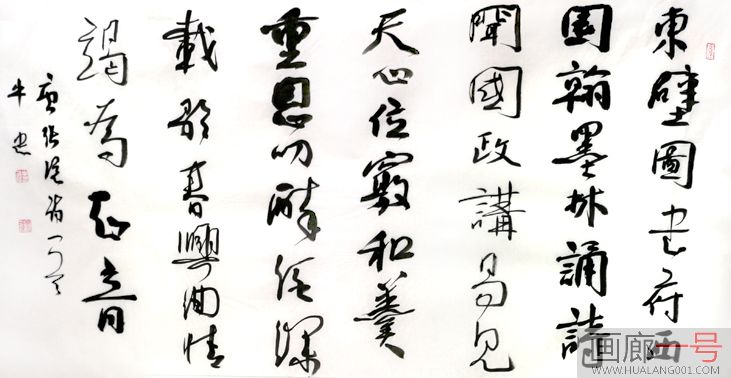 東壁圖书府西
園翰墨林誦詩
聞國政講易見
天心位竊和羹
重恩叨醉酒深
載歌春興曲情
竭為知音
唐張说诗一首
画廊一号
WWW.HUALANG001.COM